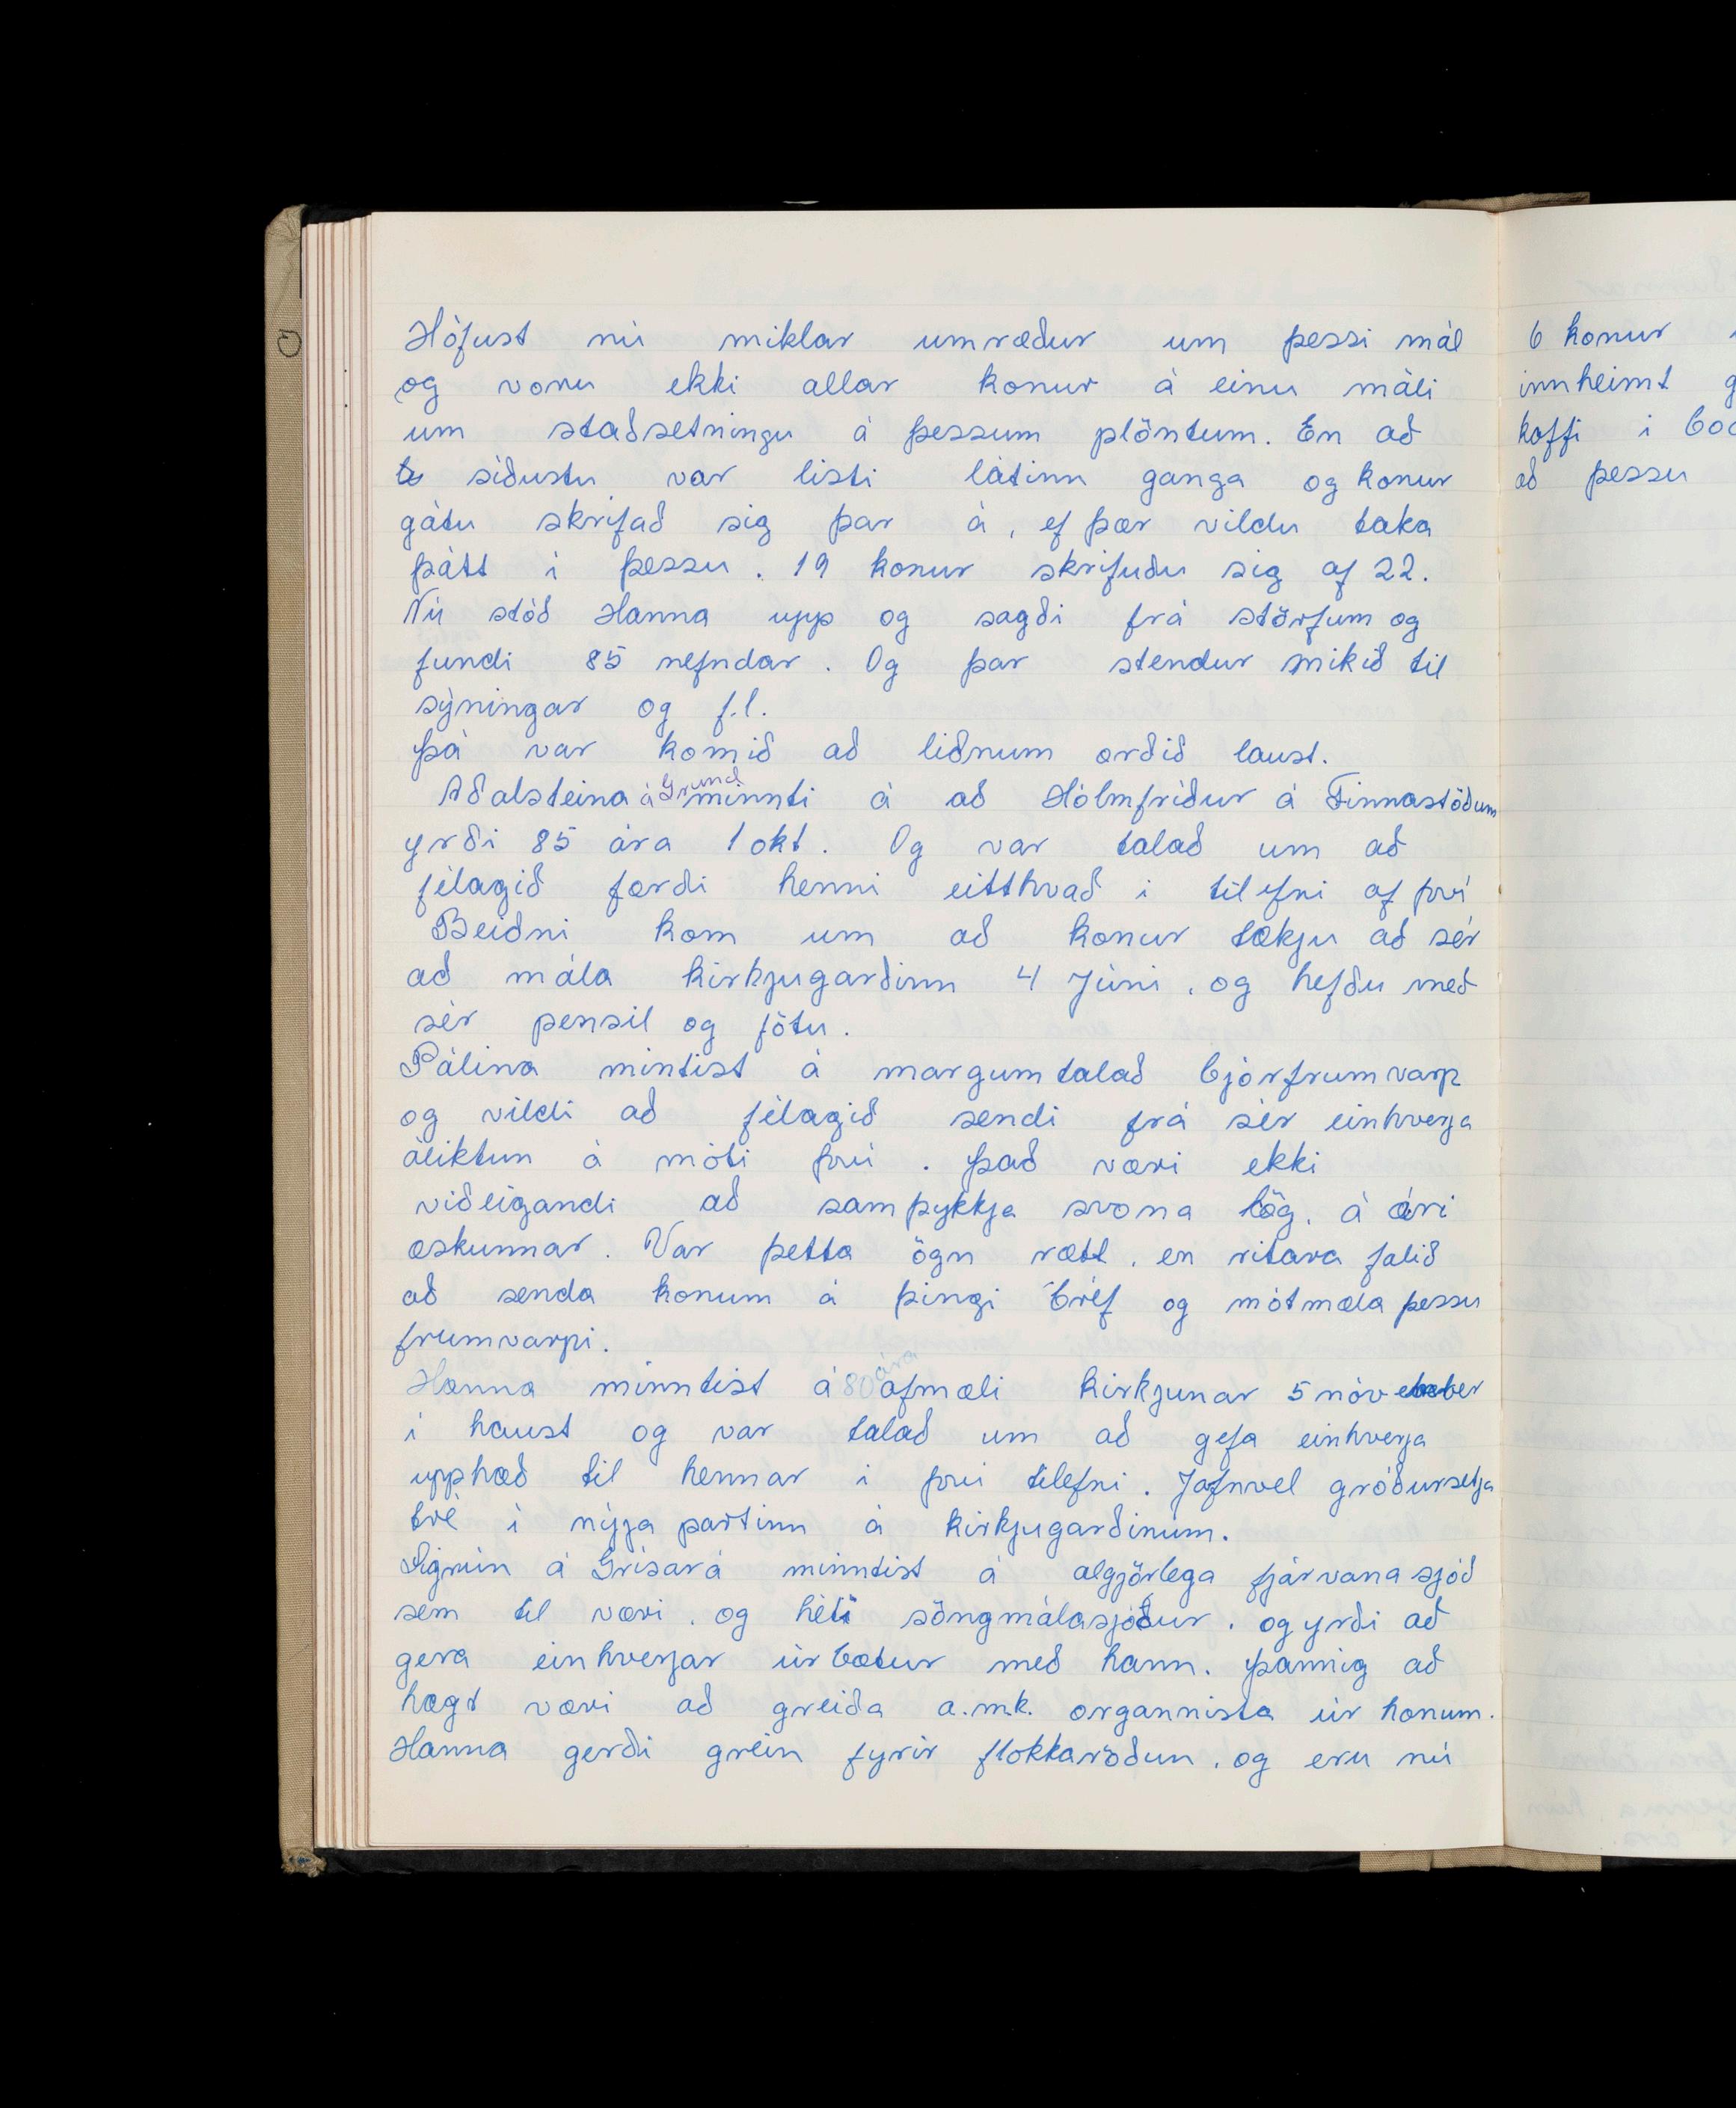 Hófust nú miklar umræður um þessi mál
og voru ekki allar konur á einu máli
um staðsetningu á þessum plöntum. En að
síðustu var listi látinn ganga og konur
gátu skrifað sig þar á, ef þær vildu taka
þátt í þessu. 19 konur skrifuðu sig af 22.
Nú stóð Hanna upp og sagði frá störfum og
fundi 85 nefndar. Og þar stendur mikið til
sýningar og f.l.
Þá var komið að liðnum orðið laust.
Aðalsteina á Grund minnti á að Hólmfríður á Finnastöðum
yrði 85 ára 1 okt. Og var talað um að
félagið færði henni eitthvað í tilefni af því
Beiðni kom um að konur tækju að sér
að mála kirkjugarðinn 4 Júní, og hefðu með
sér pensil og fötu.
Pálina mintist á margumtalað bjórfrumvarp
og vildi að félagið sendi frá sér einhverja
áliktun á móti því. Það væri ekki
viðeigandi að samþykkja svona lög, á ári
æskunnar. Var þetta ögn rætt, en ritara falið
að senda konum á þingi bréf og mótmæla þessu
frumvarpi.
Hanna minntist á 80 ára afmæli kirkjunar 5 nóvember
í haust og var talað um að gefa einhverja
upphæð til hennar í því tilefni. Jafnvel gróðursetja
tré í nýja partinn á kirkjugarðinum.
Sigrún á Grísará minntist á algjörlega fjárvana sjóð
sem til væri, og héti söngmálasjóður, og yrði að
gera einhverjar úrbætur með hann. Þannig að
hægt væri að greiða a.m.k. organnista úr honum.
Hanna gerði grein fyrir flokkaröðun, og eru nú
6 konur
innheimt
kaffi í
að þessu